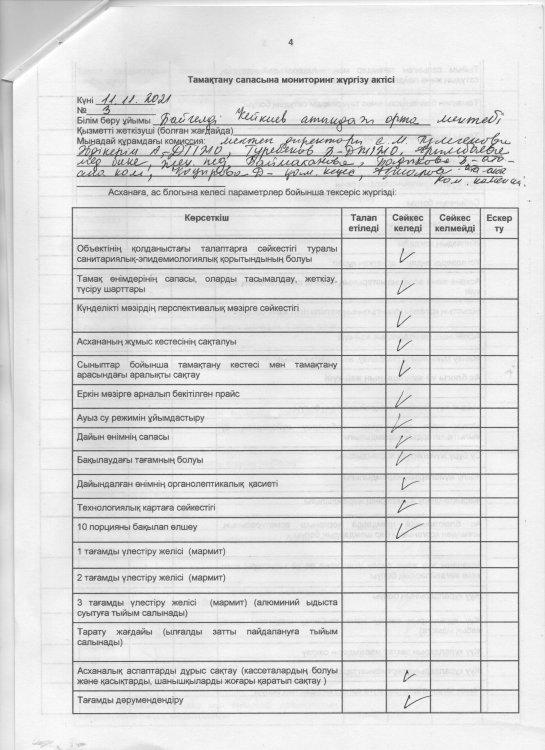 4
Тамақтану сапасына мониторинг жүргізу актісі
Күні 11.11.2021
№ 3
Білім беру ұйымы атындағы орта мектебі
Қызметті жеткізуші (болған жағдайда)
Мынадай құрамдағы комиссия: мектеп директоры
А-ДТІЖО, З-ДТІЖО,
мед бике,
ком.
Асханаға, ас блогына келесі параметрлер бойынша тексеріс жүргізді:
Көрсеткіш Талап етіледі Сәйкес келеді Сәйкес келмейді Ескерту
Объектінің қолданыстағы талаптарға сәйкестігі туралы
санитариялық-эпидемиологиялық қорытындының болуы
Тамақ өнімдерінің сапасы, оларды тасымалдау, жеткізу,
түсіру шарттары
Күнделікті мәзірдің перспективалық мәзірге сәйкестігі
Асхананың жұмыс кестесінің сақталуы
Сыныптар бойынша тамақтану кестесі мен тамақтану
арасындағы аралықты сақтау
Еркін мәзірге арналып бекітілген прайс
Ауыз су режимін ұйымдастыру
Дайын өнімнің сапасы
Бақылаудағы тағамның болуы
Дайындалған өнімнің органолептикалық қасиеті
Технологиялық картаға сәйкестігі
10 порцияны бақылап өлшеу
1 тағамды үлестіру желісі (мармит)
2 тағамды үлестіру желісі (мармит)
3 тағамды үлестіру желісі (мармит) (алюминий ыдыста
суытуға тыйым салынады)
Тарату жағдайы (ылғалды затты пайдалануға тыйым
салынады)
Асханалық аспаптарды дұрыс сақтау (кассеталардың болуы
және қасықтарды, шанышқыларды жоғары қаратып сақтау )
Тағамды дәрумендендіру